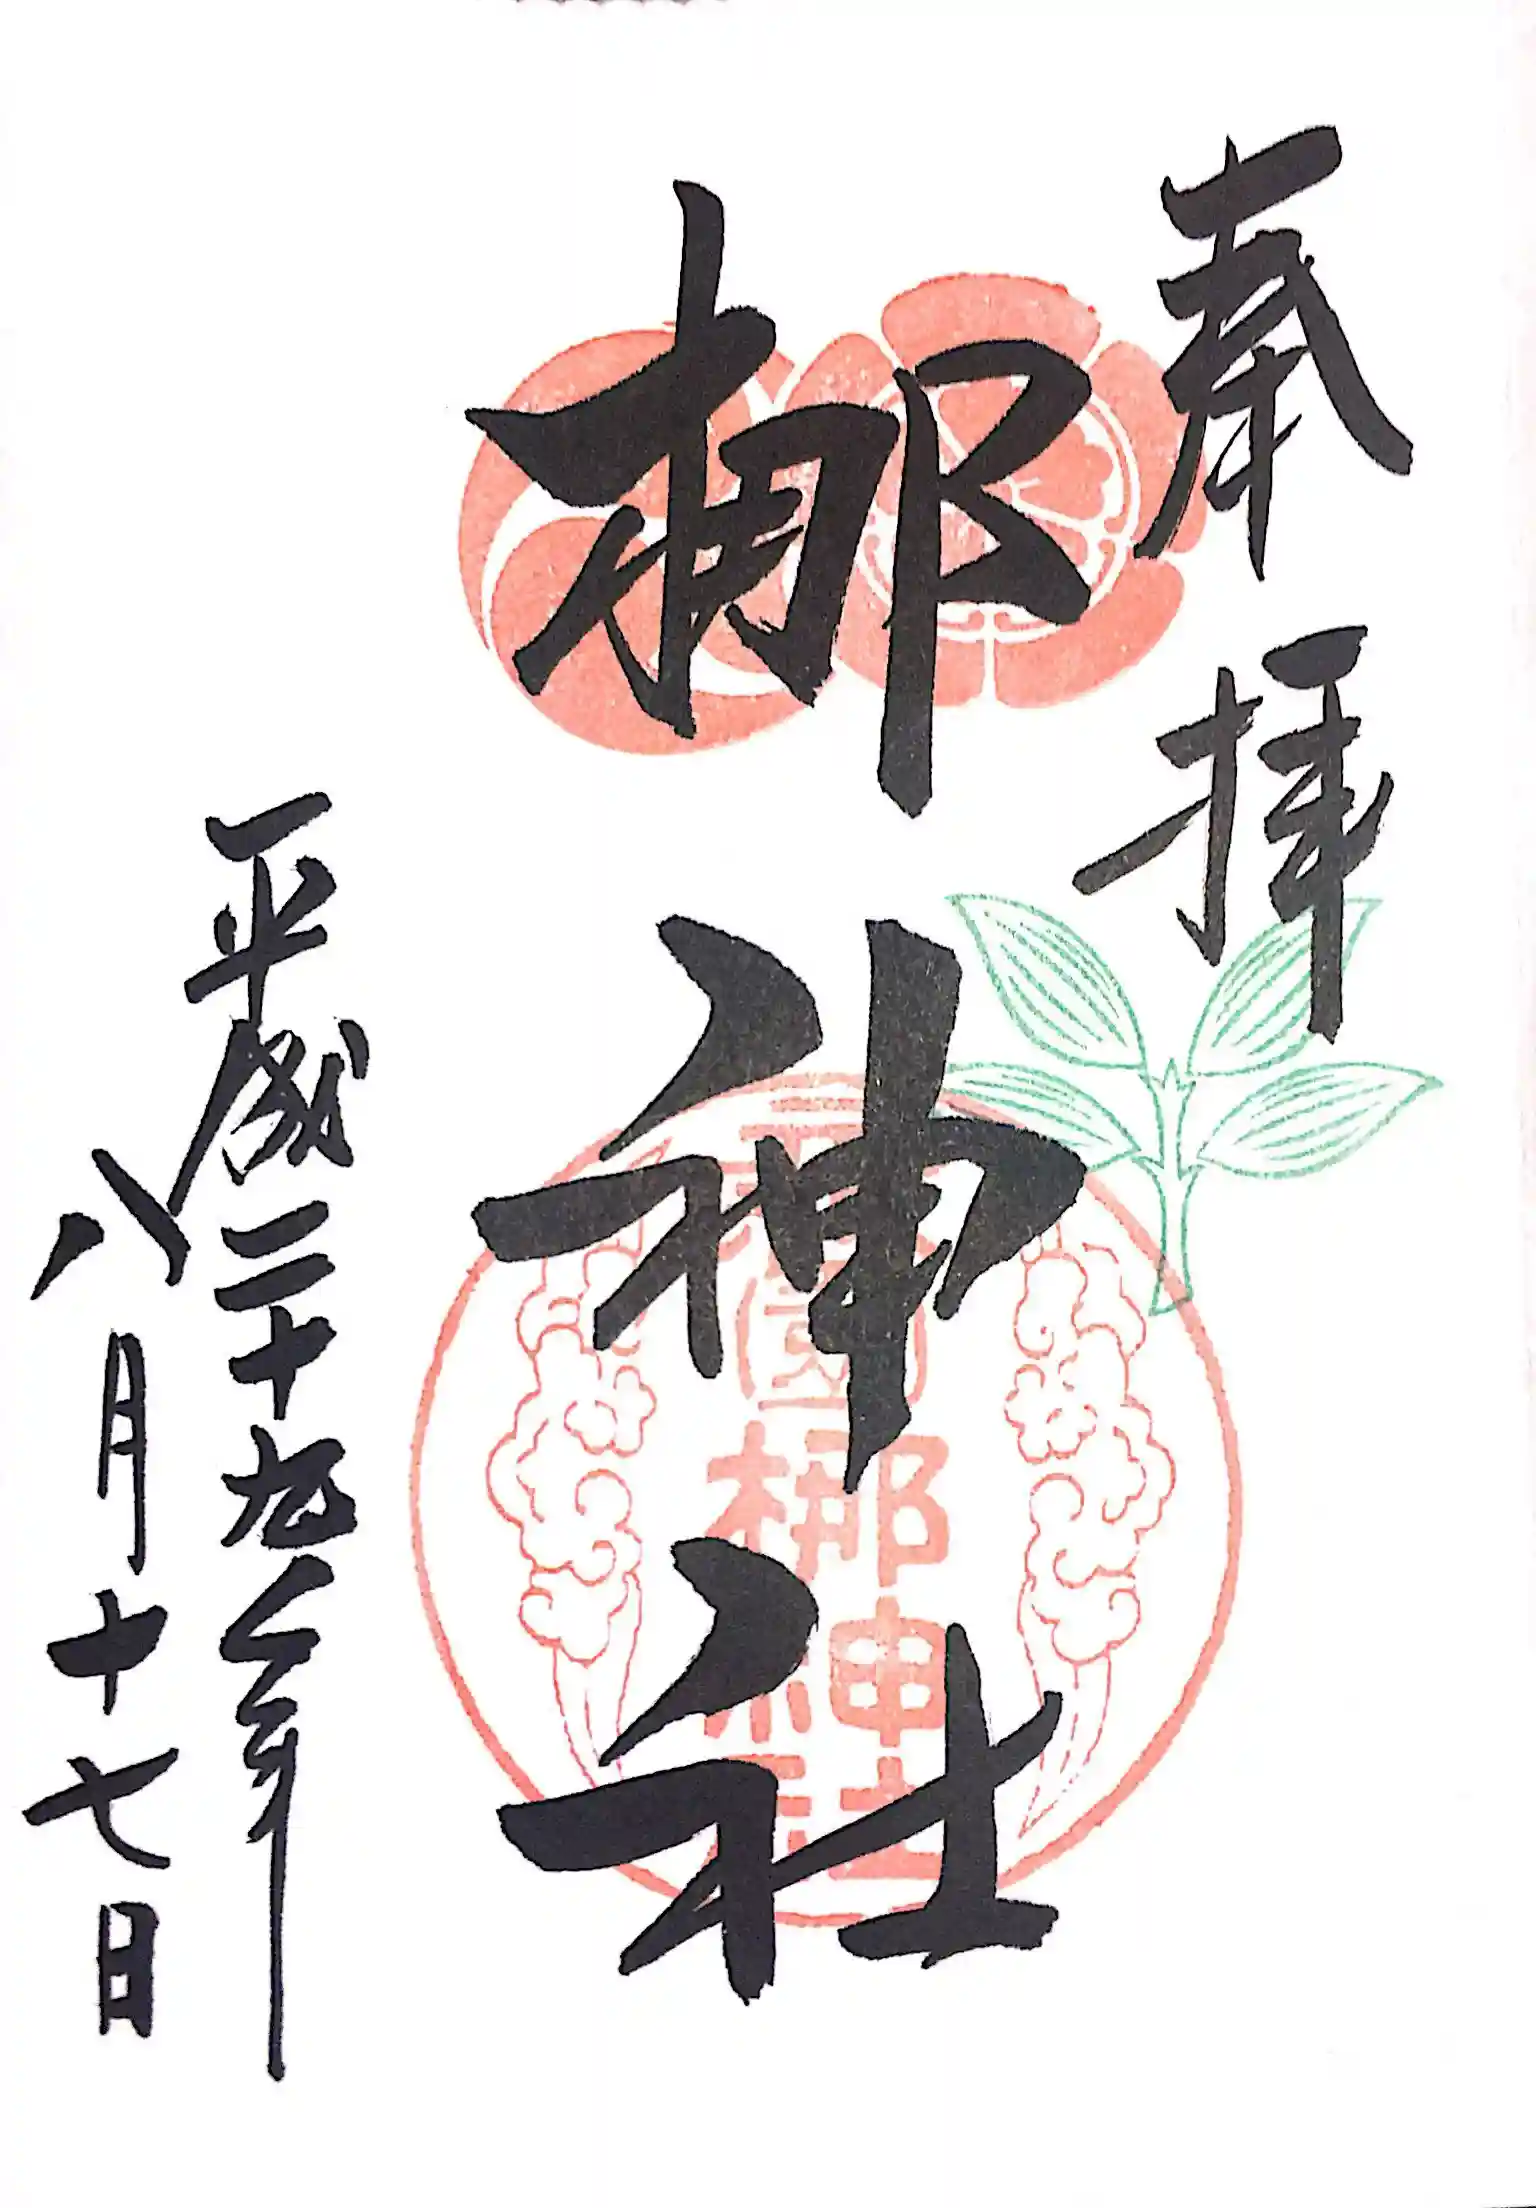 奉拝
梛神社
元祇園梛神社
平成二十九年
八月十七日